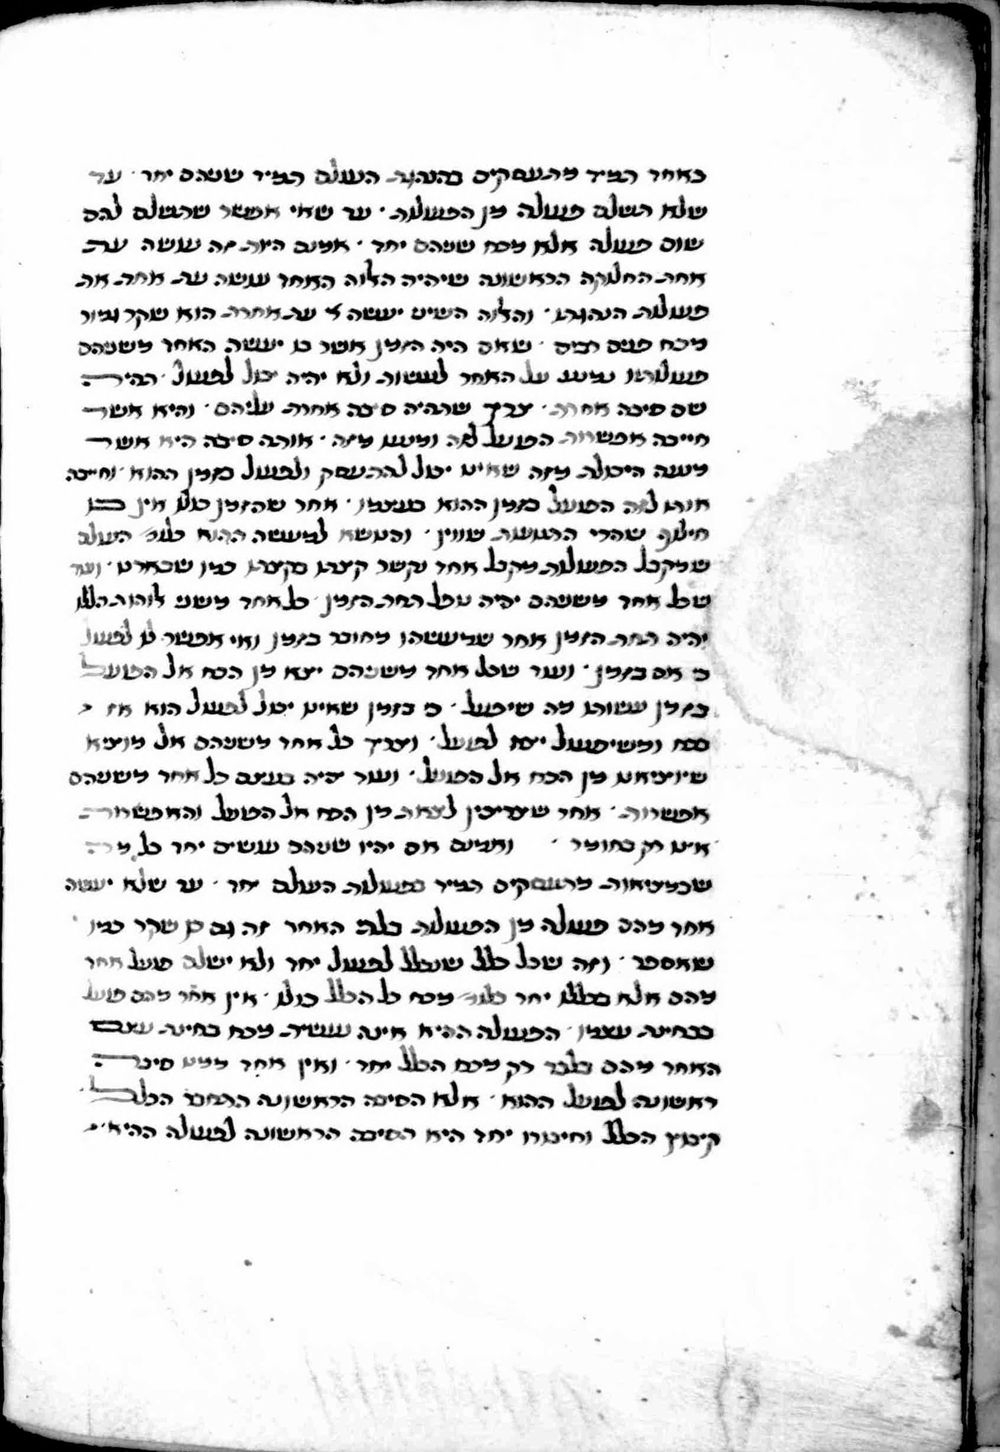 כאחד תמיד מתעסקים בהנהגת העולם תמיד שניהם יחד · עד
שלא תשלם פעולה מן הפעולות · עד שאי אפשר שתשלם להם
שום פעולה אלא מכח שניהם יחד · אמנם היות זה עושה עת
אחת החלוקה הראשונה שיהיה הלוה האחד עושה עת אחת את
פעולת הנהגתו · והלוה השיני יעשה עת אחרת הוא שקר גמור
מכח פנים רבים · שאם היה הזמן אשר בו יעשה האחד משניהם
פעולותיו נמנע על האחר לעשות ולא יהיה יכול לפעול · תהיה
שם סיבה אחרת · צריך שתהיה סיבה אחרת עליהם · והיא אשר
חייבה אפשרות הפועל לזה ומנעו מזה · אותה סיבה היא אשר
מנעה היכולת מזה שאינו יכול להתעסק ולפעול בזמן ההוא · וחייבה
אותו לזה הפועל בזמן ההוא בעצמו · אחר שהזמן כולו אין בו
חילוף שהרי התנועות שווין · והנושא למעשה ההוא כלומ' העולם
שמקבל הפעולות מקבל אחד נקשר קצתו בקצתו כמו שבארנו · ועוד
שכל אחד משניהם יהיה נופל תחת הזמן · כל אחד משני אלוהות הללו
יהיה תחת הזמן אחר שמעשהו מחובר בזמן ואי אפשר לו לפעול
כי אם בזמן · ועוד שכל אחד משניהם יצא מן הכח אל הפועל
בזמן עשותו מה שיפעל · כי בזמן שאינו יכול לפעול הוא אז
בכח ומשיפעול יצא לפועל · וצריך כל אחד משניהם אל מוציא
שיוציאנו מן הכח אל הפועל · ועוד יהיה בעצם כל אחד משניהם
אפשרות · אחר שצריכין לצאת מן הכח אל הפועל והאפשרות
אינו רק בחומר · ואמנם אם יהיו שניהם עושים יחד כל מה
שבמציאות מתעסקים תמיד בפעולות העולם יחד · עד שלא יעשה
אחד מהם פעולה מן הפעולות בלתי האחר זה גם כן שקר כמו
שאספר · וזה שכל כלל שנכלל לפעול יחד ולא ישלם פועל אחד
מהם אלא בכללו יחד כלומ' מכח כל הכלל כולו · אין אחד מהם פועל
בבחינת עצמו · הפעולה ההיא אינה נעשית מכח בחינת עצם
האחד מהם בלבד רק מכח הכלל יחד · ואין אחד ממנו סיבה
ראשונה לפועל ההוא · אלא הסיבה הראשונה הכלל
קיבוץ הכלל וחיבורו יחד היא הסיבה הראשונה לפעולה ההיא ·